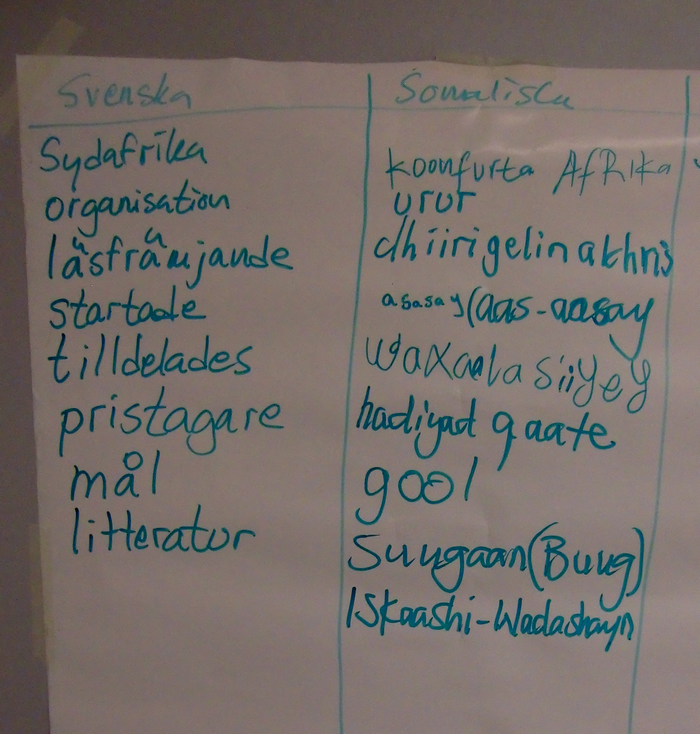 Svenska Somaliska
Sydafrika koonfurta AfRIka
organisation urur
läsfrämjande dhiirigelin akhris
startade asasay (aas-aasay
tilldelades waxaala siiyey
pristagare hadiyad qaate
mål gool
litteratur Suugaan (Buug)
ISkaashi-Wadashayn